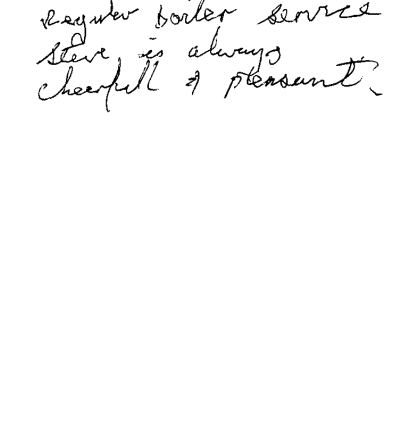 Regular boiler service
Steve is always
cheerfull & pleasant.